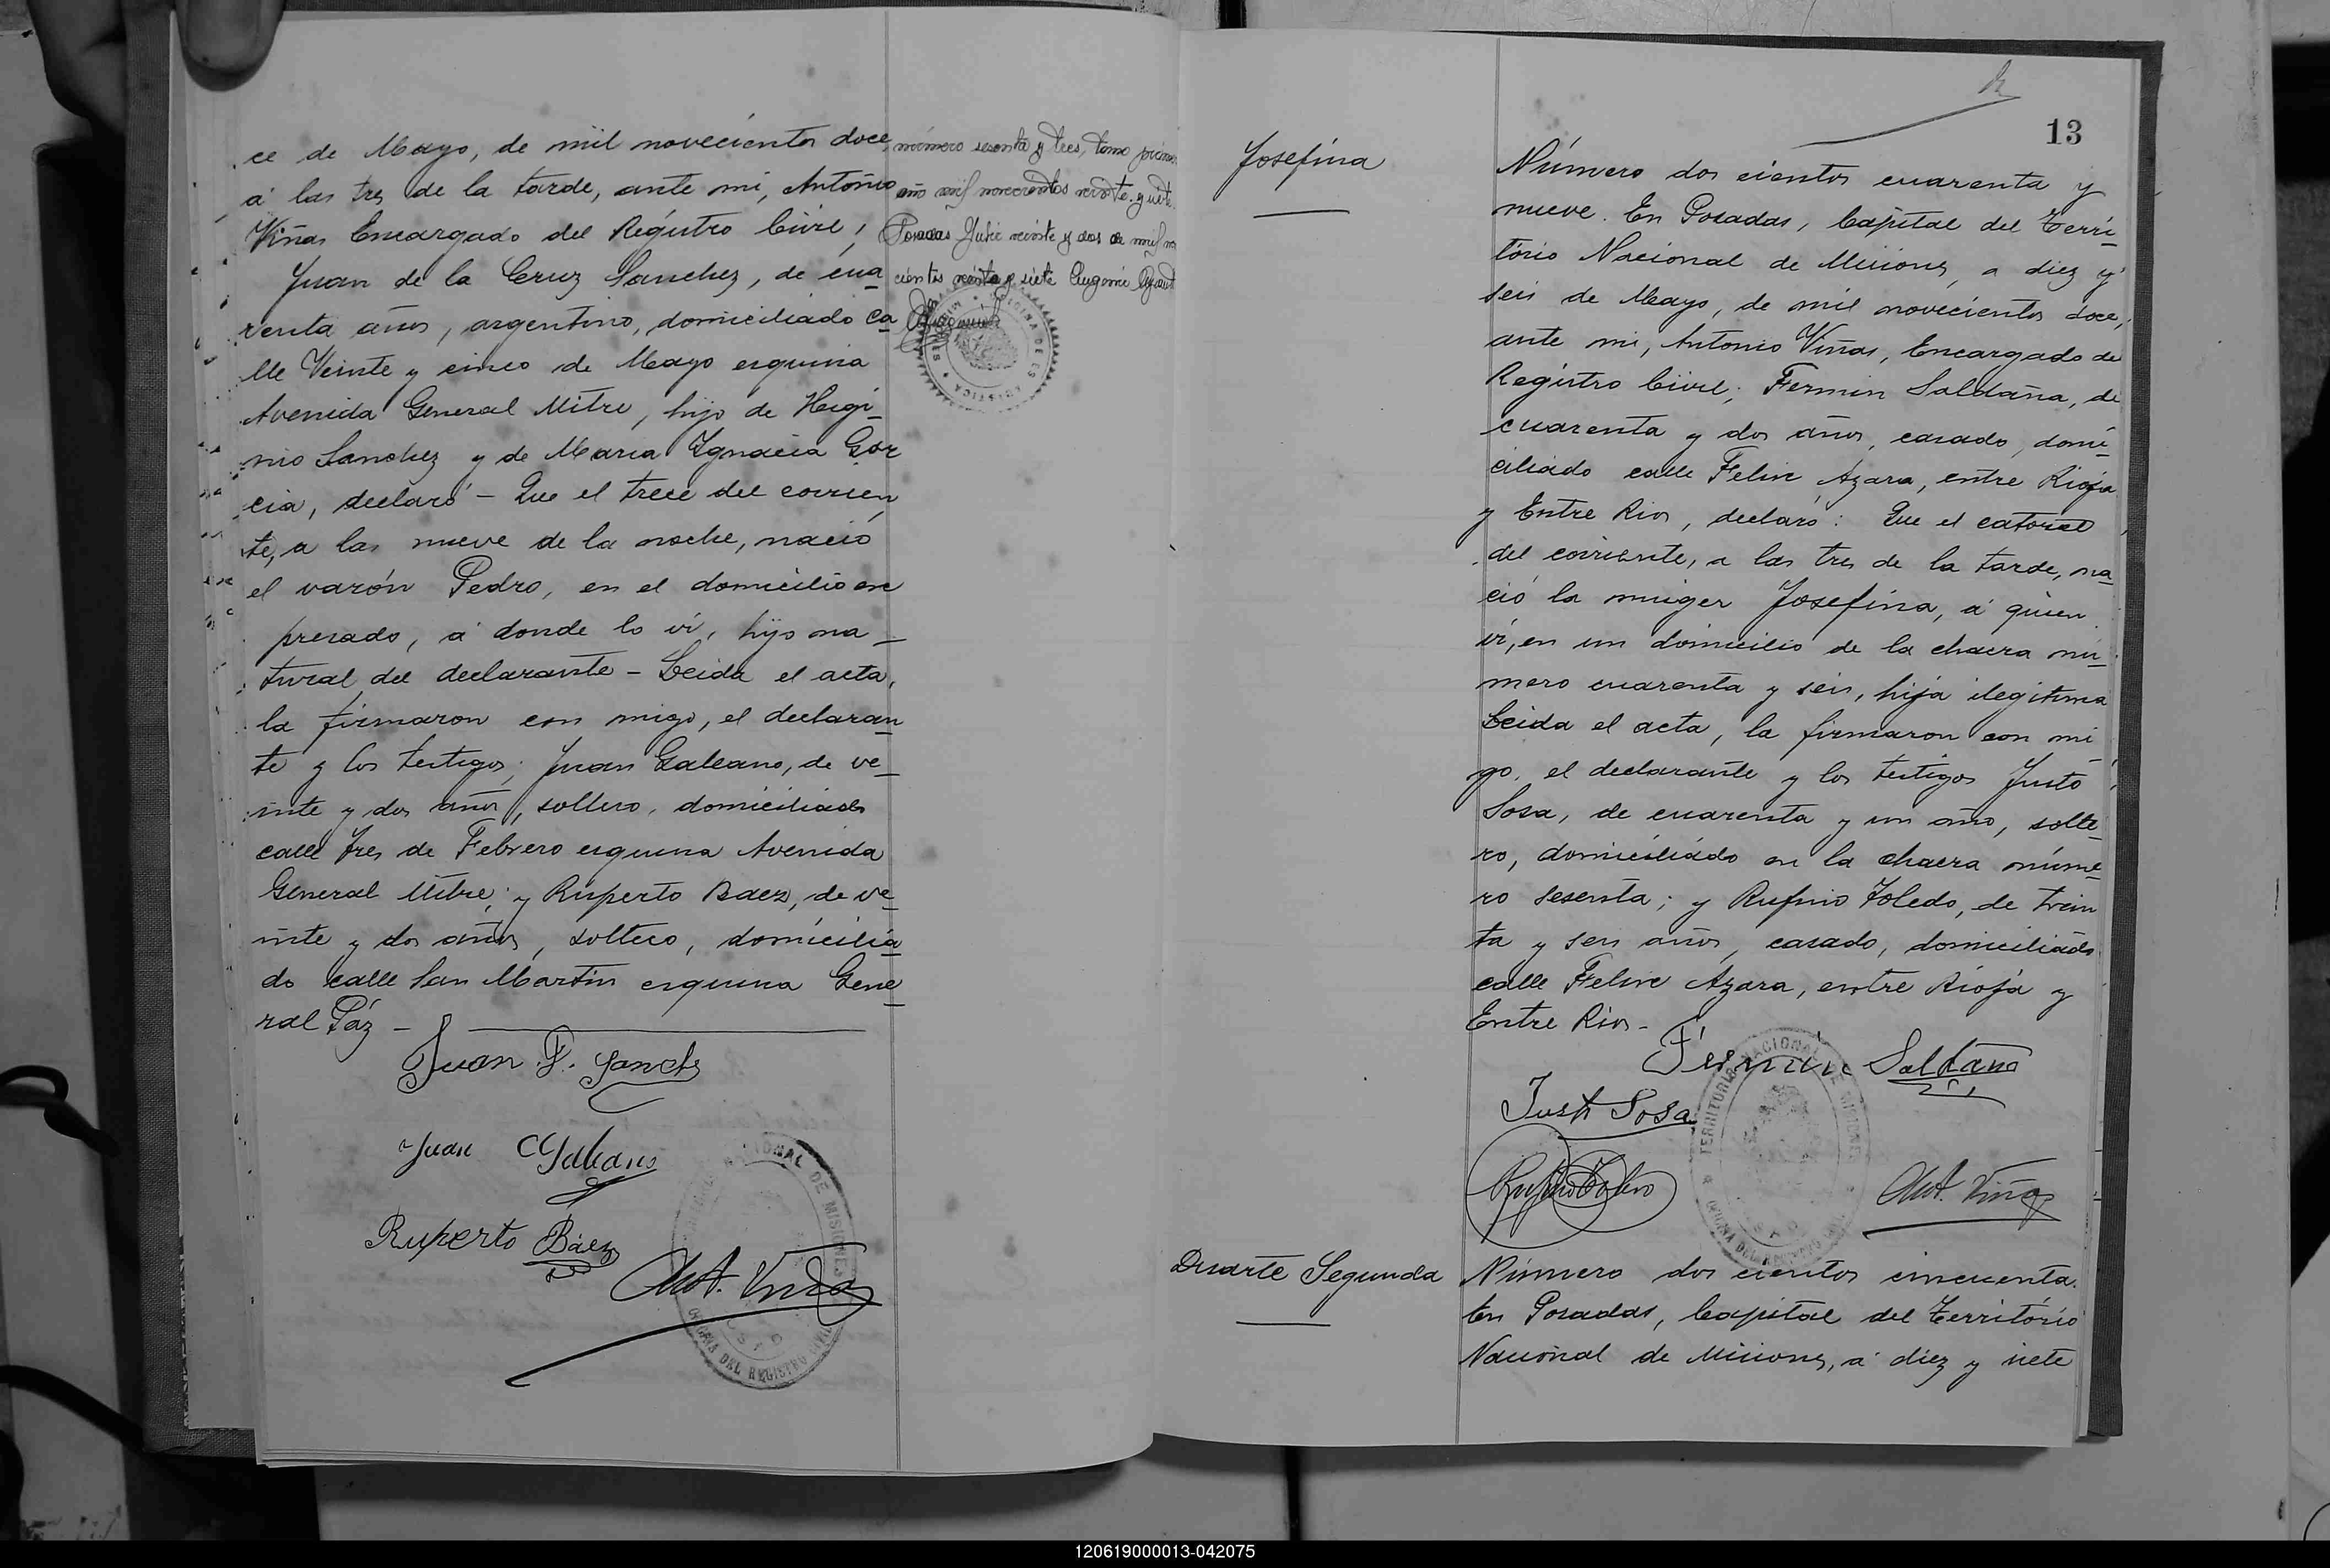 ce de Mayo, de mil novecientos doce,
á las tres de la tarde, ante mi, Antonio
Viñas Encargado del Registro Civil;
Juan de la Cruz Sanchez, de cua_
renta años, argentino, domiciliado ca
lle Veinte y cinco de Mayo esquina
Avenida General Mitre, hijo de Higi_
nio Sanchez y de Maria Ygnacia Gar
cia, declaró - Que el trece del corrien_
te, a las nueve de la noche, nació
el varón Pedro, en el domicilio ex
presado, á donde lo ví, hijo na_
tural del declarante - Leida el acta,
la firmaron con migo, el declaran_
te y los testigos; Juan Galeano, de ve_
inte y dos años, soltero, domiciliado
calle Tres de Febrero esquina Avenida
General Mitre; y Ruperto Baez, de ve_
inte y dos años, soltero, domicilia_
do calle San Martin esquina Gene_
ral Páz -
Juan F. Sanchz
Juan Galeano
Ruperto Báez
Ant. Viñas
número sesenta y tres, tomo primer
año mil novecientos veinte y siete.
Posadas Julio veinte y dos de mil no
cientos veinte y siete Eugenio
13
Josefina
Número dos cientos cuarenta y
nueve. En Posadas, Capital del Terri_
tório Nacional de Misiones, a diez y
seis de Mayo, de mil novecientos doce,
ante mi, Antonio Viñas, Encargado del
Registro Civil; Fermin Saldaña, de
cuarenta y dos años, casado, domi_
ciliado calle Felix Azara, entre Rioja
y Entre Rios, declaró: Que el catorce
del corriente, a las tres de la tarde, na_
ció la muiger Josefina, á quien
ví, en un domicilio de la chacra nú_
mero cuarenta y seis, hija ilegitima
Leida el acta, la firmaron con mi_
go, el declarante y los testigos Justo
Sosa, de cuarenta y un año, solte_
ro, domiciliádo en la chacra núme_
ro sesenta; y Rufino Toledo, de trein
ta y seis años, casado, domiciliado
calle Felix Azara, entre Rioja y
Entre Rios -
Fermin Saldaña
Justo Sosa
Rufino Toledo
Ant. Viñas
TERRITORIO NACIONAL DE MISIONES
Duarte Segunda
Número dos cientos cincuenta.
En Posadas, Capital del Território
Nacional de Misiones, á diez y siete
120619000013-042075